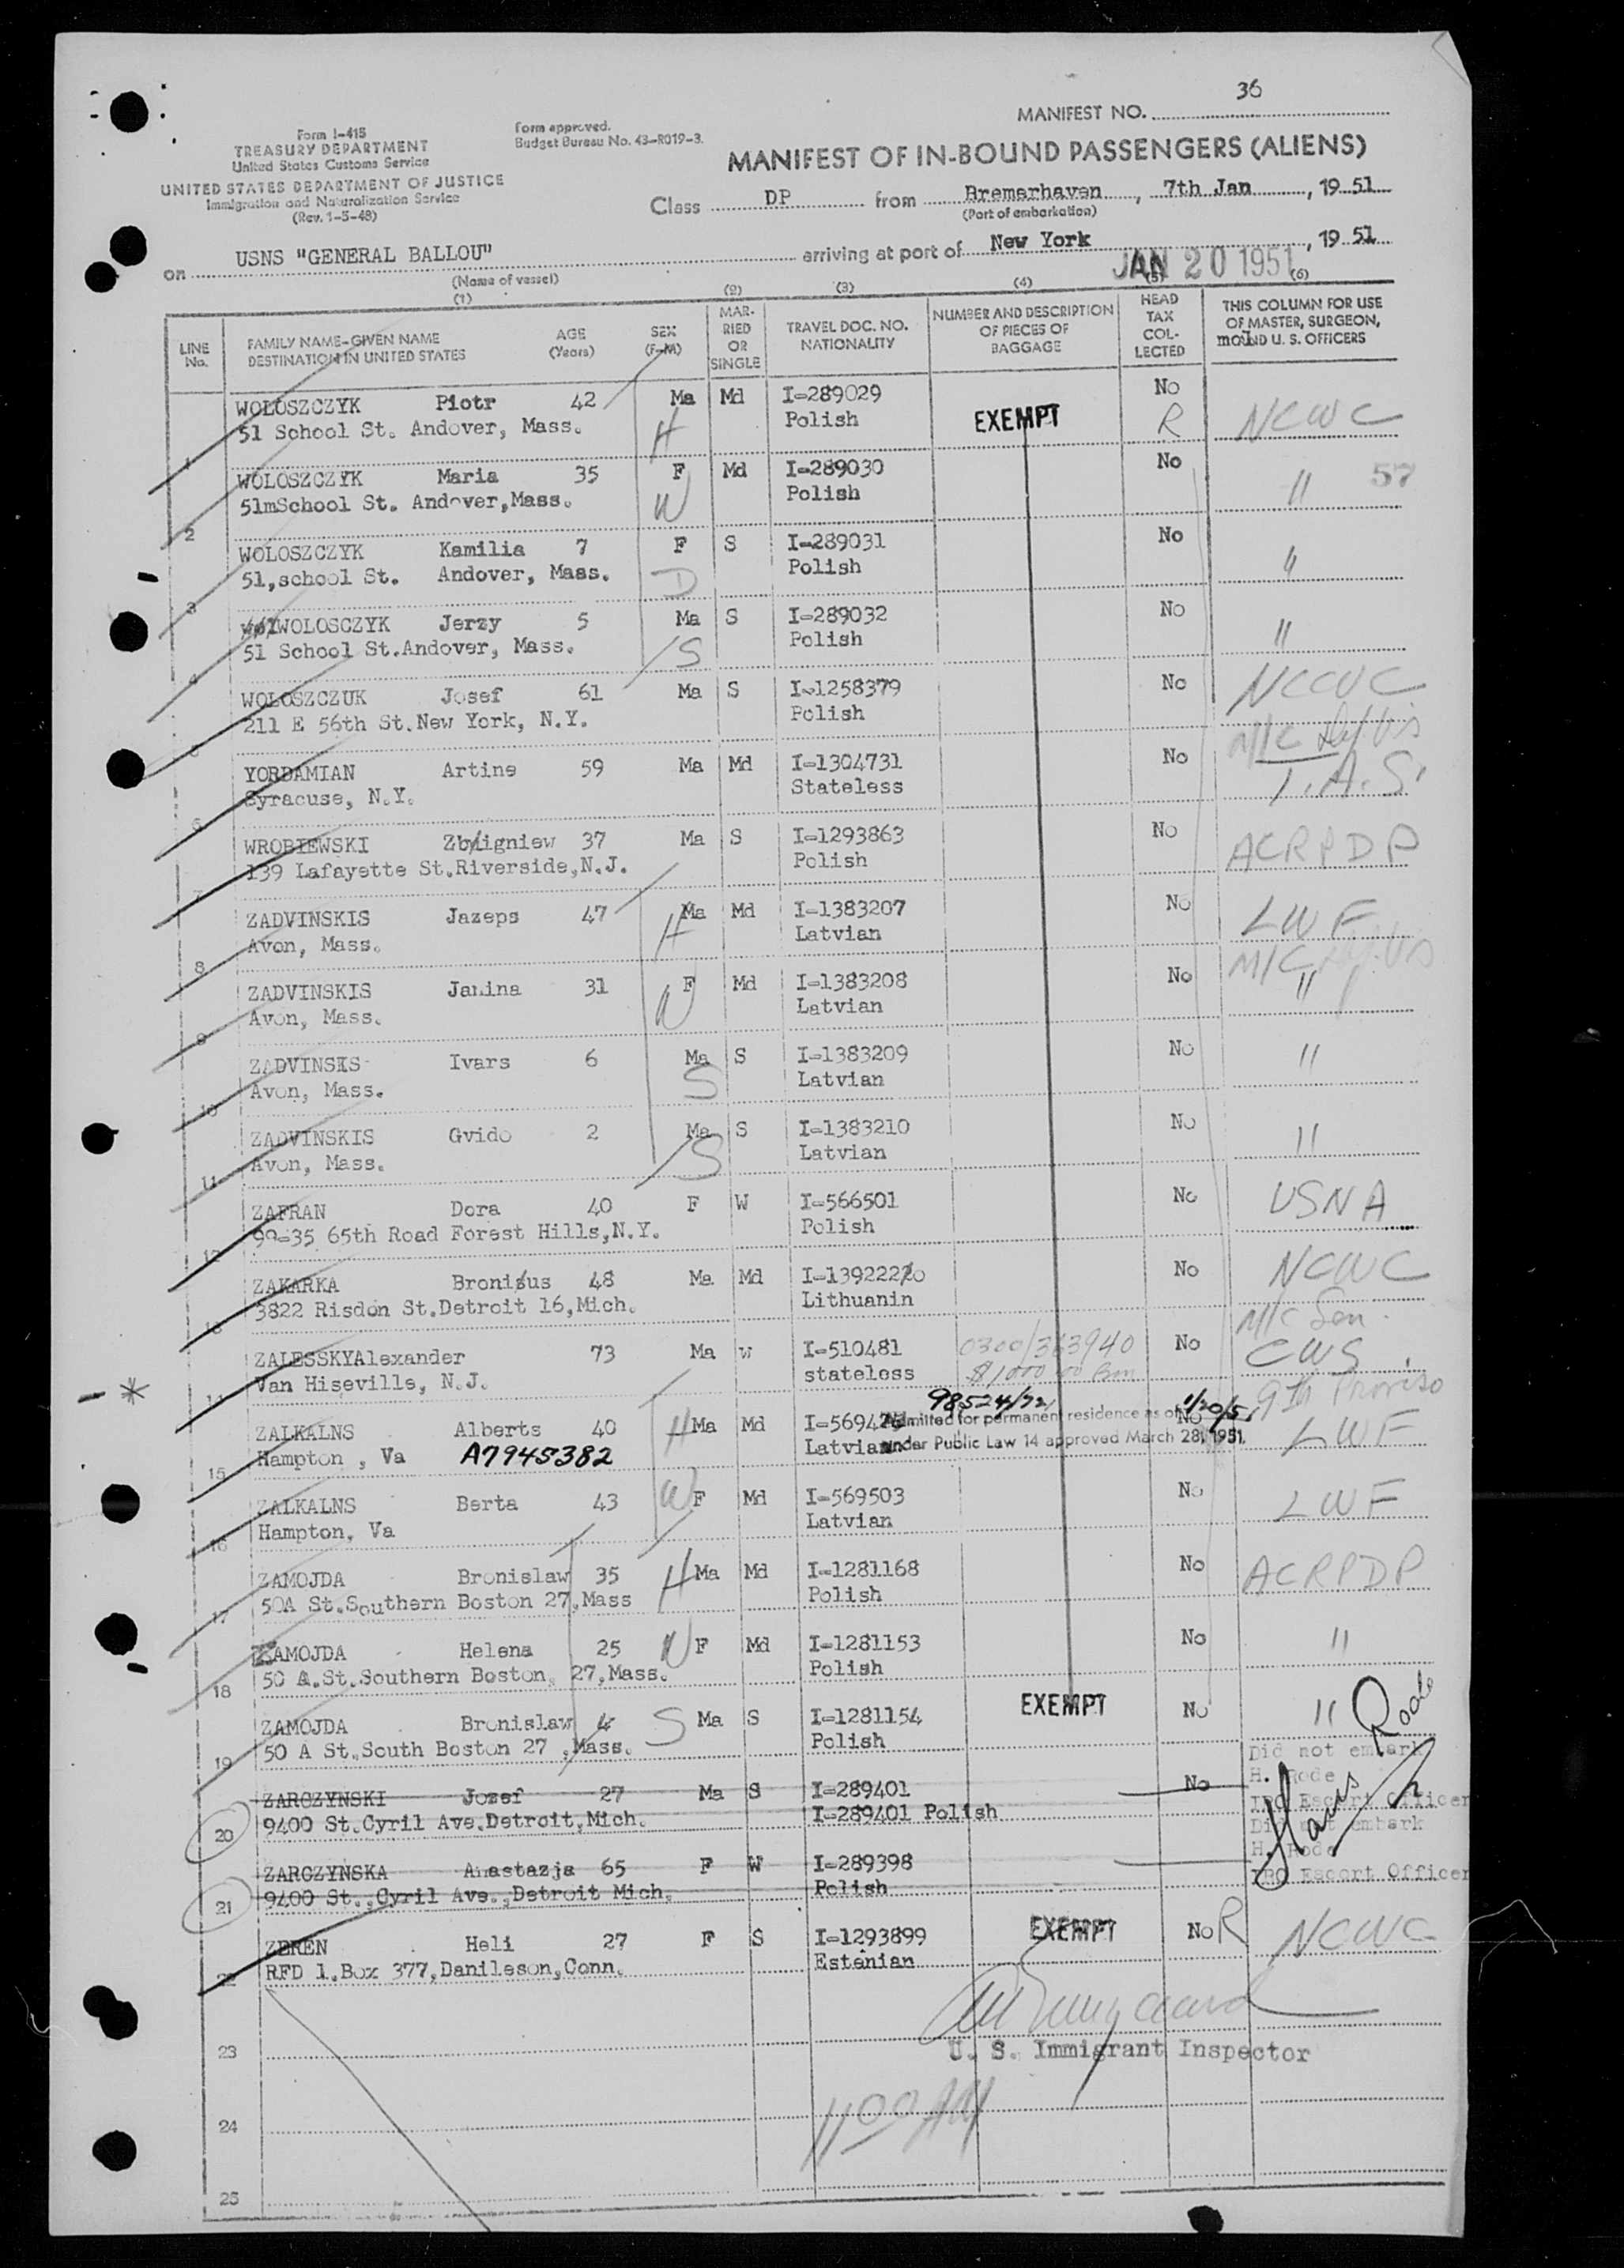 36
MANIFEST NO.
Form I-415
TREASURY DEPARTMENT
United States Customs Service
UNITED STATES DEPARTMENT OF JUSTICE
Immigration and Naturalization Service
(Rev. 1-5-48)
Form approved.
Budget Bureau No. 43-R019-3.
MANIFEST OF IN-BOUND PASSENGERS (ALIENS)
Class DP from Bremerhaven, 7th Jan, 1951
(Port of embarkation)
on USNS "GENERAL BALLOU" arriving at port of New York, 1951
(Name of vessel)
JAN 20 1951
(1) (2) (3) (4) (5) (6)
LINE No. FAMILY NAME-GIVEN NAME DESTINATION IN UNITED STATES AGE (Years) SEX (F-M) MARRIED OR SINGLE TRAVEL DOC. NO. NATIONALITY NUMBER AND DESCRIPTION OF PIECES OF BAGGAGE HEAD TAX COLLECTED THIS COLUMN FOR USE OF MASTER, SURGEON, AND U. S. OFFICERS
WOLOSZCZYK Piotr 42 Ma Md I-289029 No
51 School St. Andover, Mass. H Polish EXEMPT R NCWC
1
WOLOSZCZYK Maria 35 F Md I-289030 No
51mSchool St. Andover,Mass. W Polish " 57
2
WOLOSZCZYK Kamilia 7 F S I-289031 No
51,school St. Andover, Mass. D Polish "
3
WOLOSCZYK Jerzy 5 Ma S I-289032 No
51 School St.Andover, Mass. S Polish "
4
WOLOSZCZUK Josef 61 Ma S I-1258379 No NCWC
211 E 56th St.New York, N.Y. Polish
5
YORDAMIAN Artine 59 Ma Md I-1304731 No
Syracuse, N.Y. Stateless I.A.S.
6
WROBIEWSKI Zbigniew 37 Ma S I-1293863 No ACRPDP
139 Lafayette St.Riverside,N.J. Polish
7
ZADVINSKIS Jazeps 47 H Ma Md I-1383207 No LWF
Avon, Mass. Latvian
8
ZADVINSKIS Janina 31 F Md I-1383208 No "
Avon, Mass. W Latvian
9
ZADVINSKS Ivars 6 Ma S I-1383209 No "
Avon, Mass. S Latvian
10
ZADVINSKIS Gvido 2 Ma S I-1383210 No "
Avon, Mass. S Latvian
11
ZAFRAN Dora 40 F W I-566501 No USNA
99-35 65th Road Forest Hills,N.Y. Polish
12
ZAKARKA Bronisus 48 Ma Md I-1392220 No NCWC
3822 Risdon St.Detroit 16,Mich. Lithuanin
13
ZALESSKYAlexander 73 Ma W I-510481 0300/363940 No CWS
Van Hiseville, N.J. stateless
14
9th Proviso
ZALKALNS Alberts 40 H Ma Md Admitted for permanent residence as of 1/20/51 No LWF
Hampton , Va A7945382 Latvian under Public Law 14 approved March 28, 1951.
15
ZALKALNS Berta 43 W F Md I-569503 No LWF
Hampton, Va Latvian
16
ZAMOJDA Bronislaw 35 H Ma Md I-1281168 No ACRPDP
50A St.Southern Boston 27,Mass Polish
17
ZAMOJDA Helena 25 W F Md I-1281153 No "
50 A.St.Southern Boston, 27,Mass. Polish
18
ZAMOJDA Bronislaw 4 S Ma S I-1281154 EXEMPT No "
50 A St.South Boston 27 ,Mass. Polish
19
Did not embark
H. Rode
ZARCZYNSKI Jozef 27 Ma S I-289401 No IRO Escort Officer
9400 St.Cyril Ave.Detroit,Mich. I-289401 Polish
20
Did not embark
H. Rode
ZARCZYNSKA Anastazja 65 F W I-289398 IRO Escort Officer
9400 St.,Cyril Ave.,Detroit Mich. Polish
21
Hans Rode
ZEREN Heli 27 F S I-1293899 EXEMPT No R NCWC
RFD 1.Box 377,Danileson,Conn. Estonian
22
23
U. S. Immigrant Inspector
24
11 00 AM
25